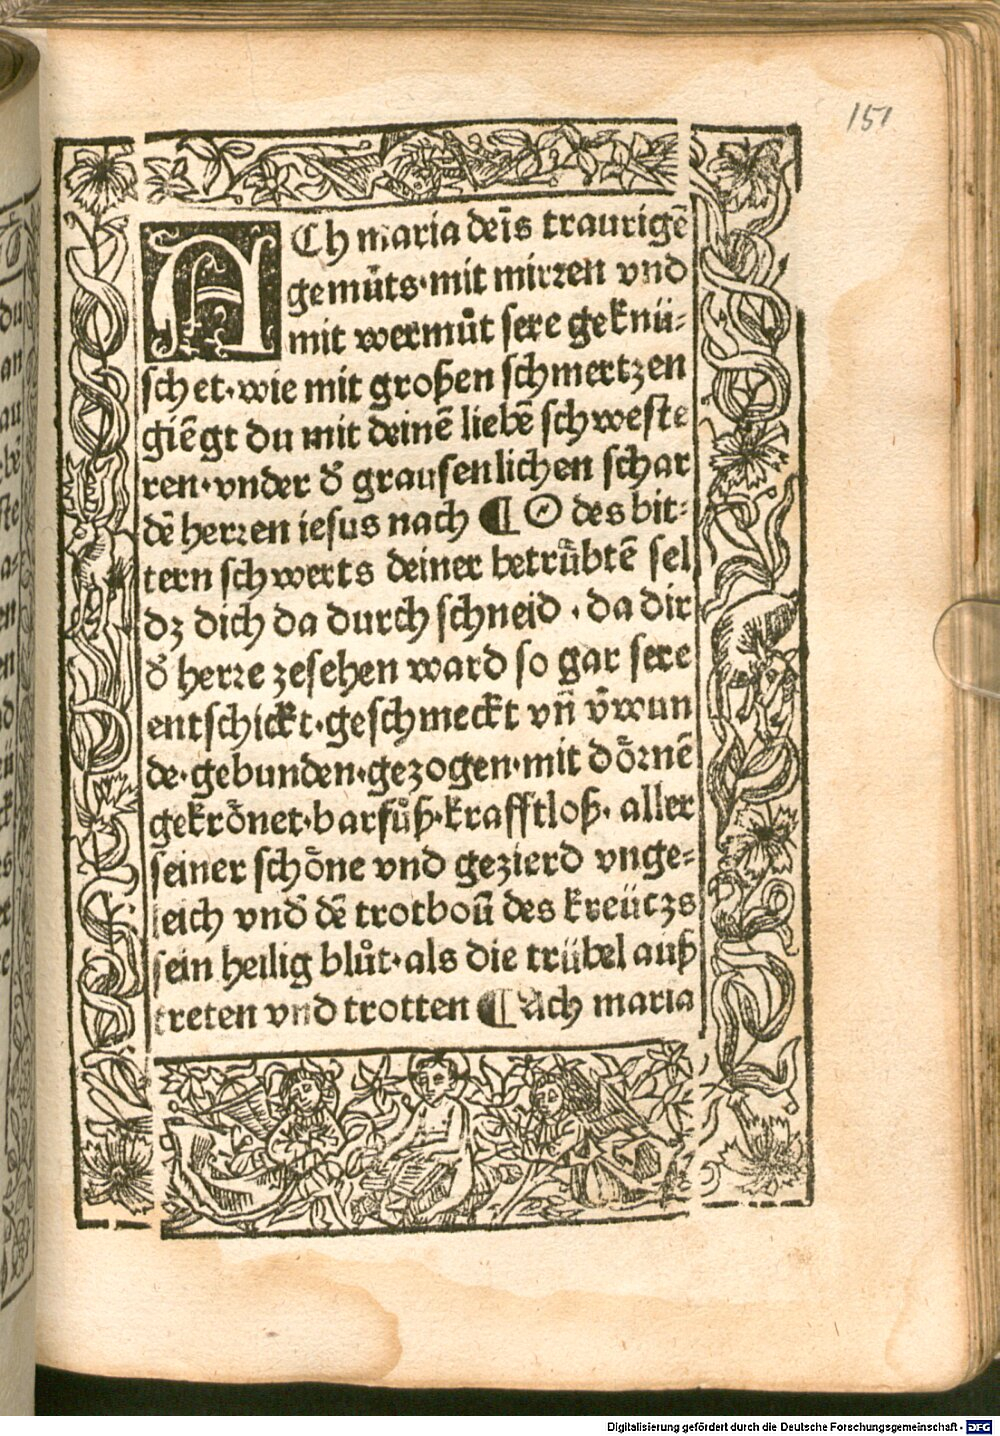 151
ACh maria deīs traurigē
gemuͤts·mit mirꝛen vnd
mit wermuͦt sere geknü⸗
schet·wie mit großen schmertzen
giēgt du mit deinē liebē schweste
ren·vnder dˀ grausenlichen schar
dē herꝛen iesus nach ¶ O des bit⸗
tern schwerts deiner betruͤbtē sel
dz dich da durch schneid · da dir
dˀ herꝛe zesehen ward so gar sere
entschickt·geschmeckt vn̄ v̄wun
de·gebunden·gezogen·mit doͤꝛnē
gekroͤnet·barfuͦß·krafftloß· aller
seiner schoͤne vnd gezierd vnge⸗
leich vndˀ dē trotboū des kreützs
sein heilig bluͦt·als die trübel auß
treten vnd trotten ¶ Ach maria
Digitalisierung gefördert durch die Deutsche Forschungsgemeinschaft - DFG